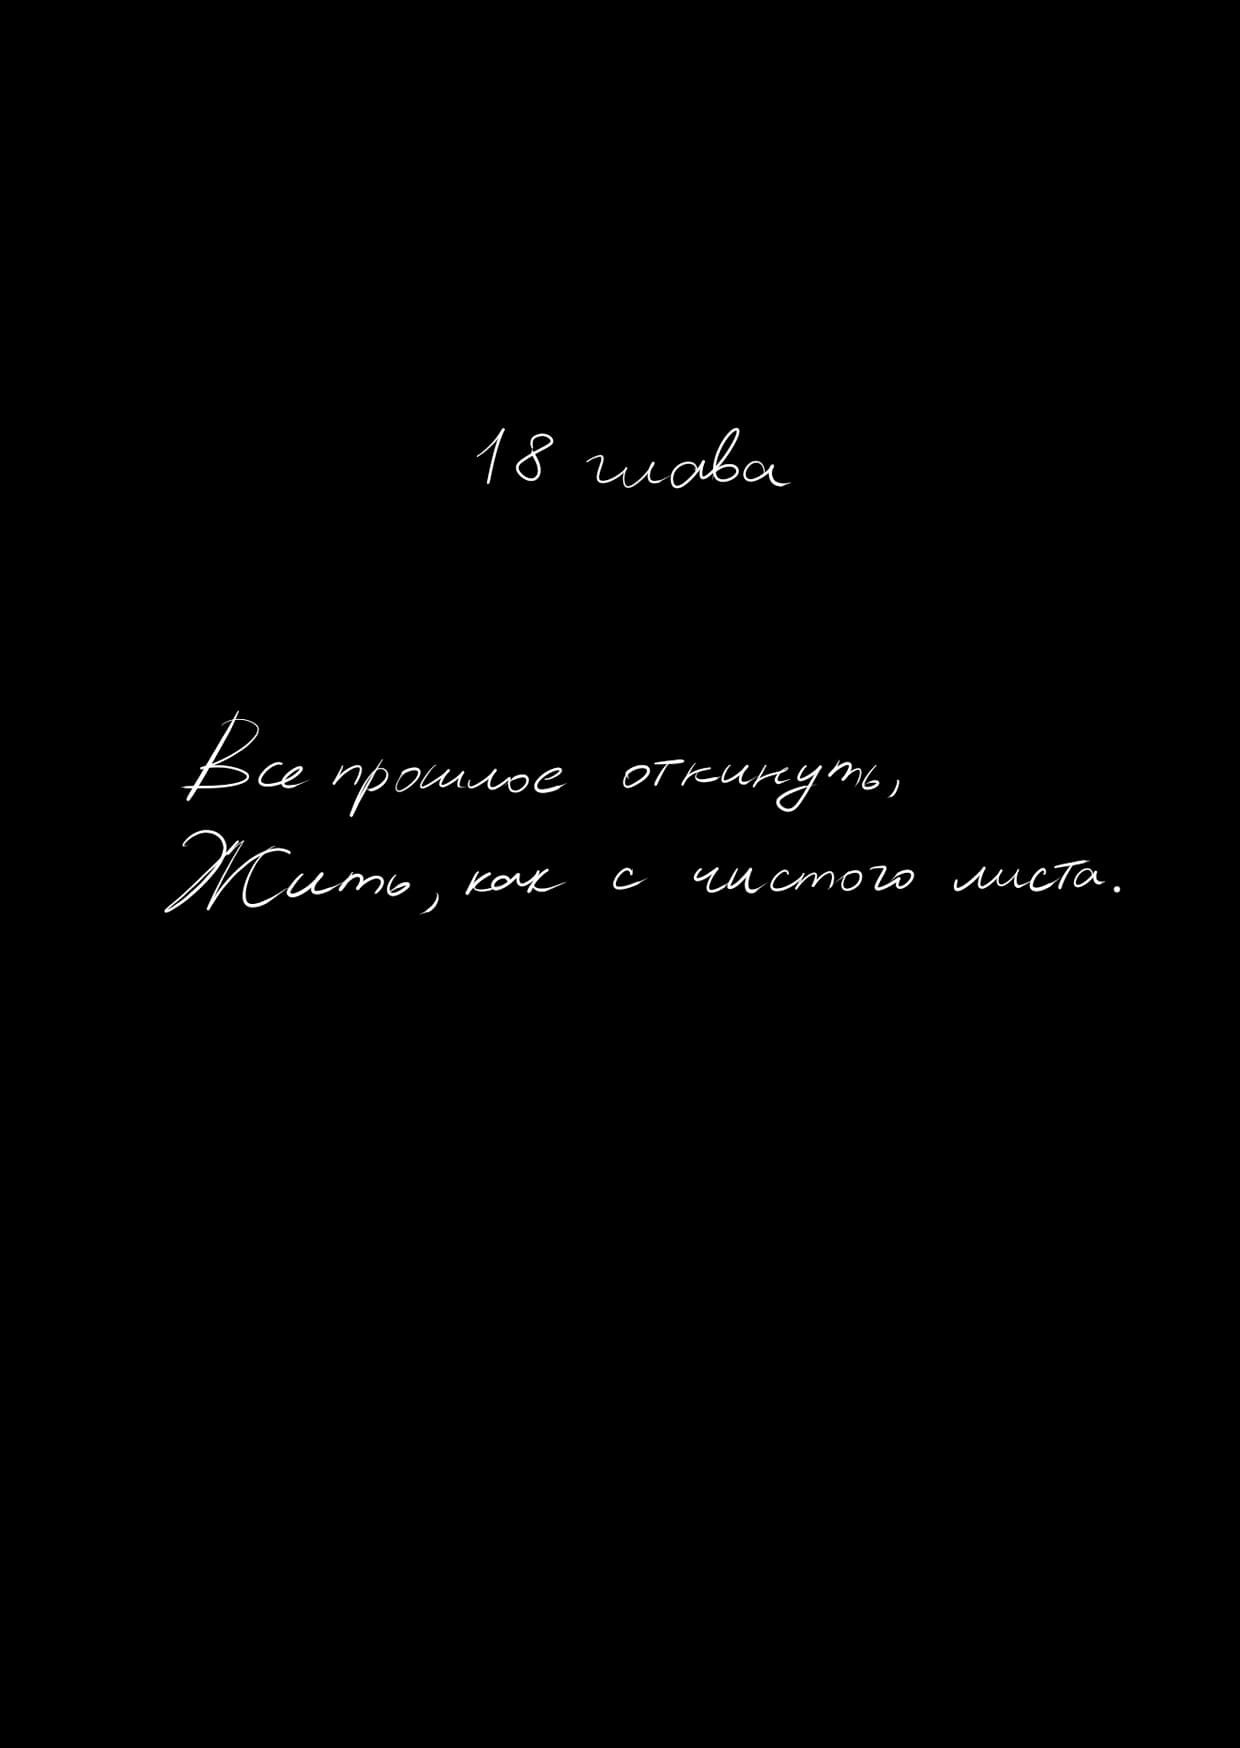 18 глава
Все прошлое откинуть,
Жить, как с чистого листа.